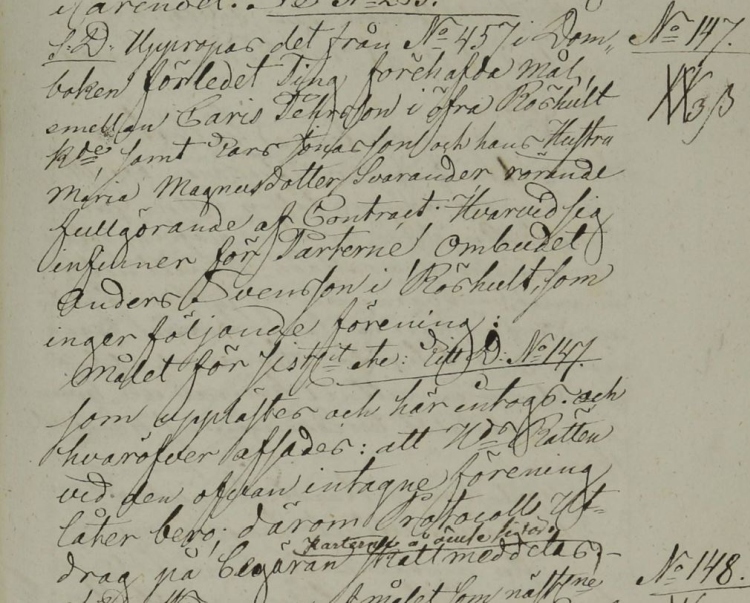 S. D. Uppropas det från No 457 i Dom- No 147.
boken förledet Ting förehafda mål,
emellan Caris Pehrsson i öfra Röshult
Kde, samt Lars Jonasson och hans Hustru
Maria Magnusdotter Svarander rörande
fullgörande af Contract. Hvarvid sig
infinner för Parterne Ombudet
Anders Svensson i Röshult, som
inger följande förening:
Målet för sist etc: Litt D: No 147.
som upplästes och här intogs. och
hvaröfver afsades: att Hds Rätten
vid den ofvan intagne förening
låter bero; därom Protocolls Ut-
drag på begäran meddelas.
No 148.
målet som näst